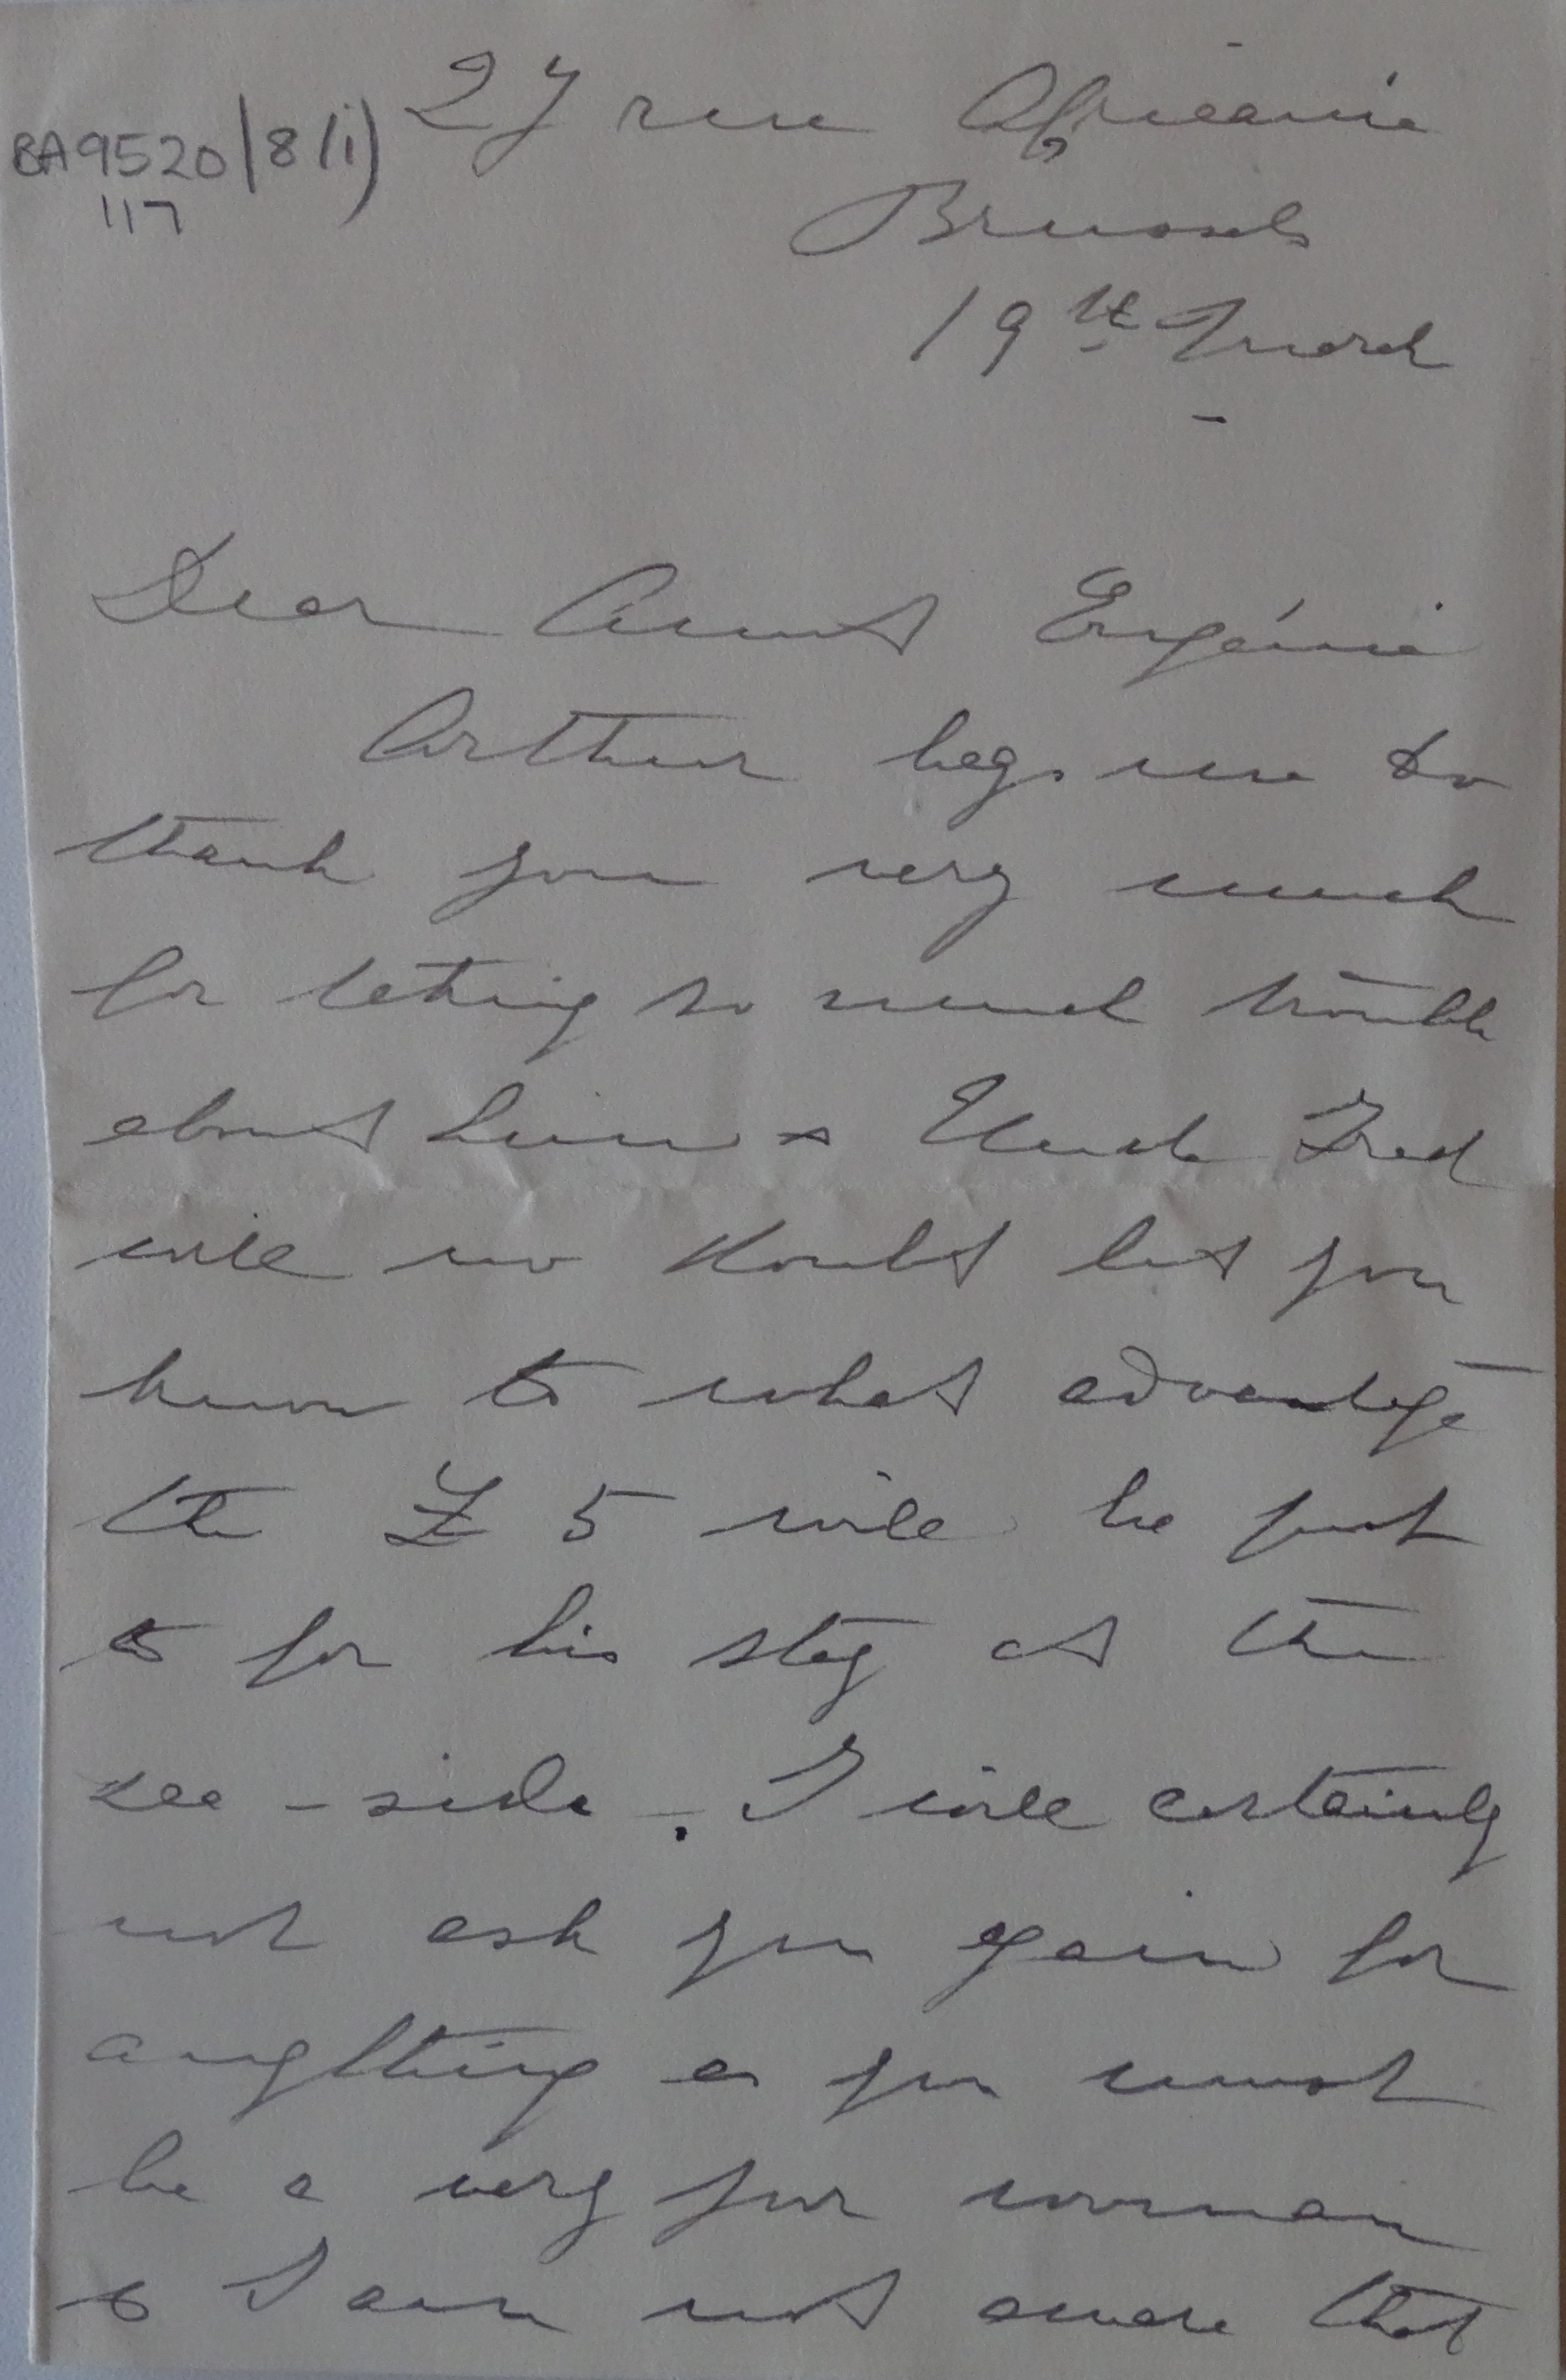 BA9520/8(i)
117
27 rue Africaine
Brussels
19th March
Dear Aunt Eugénie
Arthur begs me to
thank you very much
for taking so much trouble
about him & Uncle Fred
will no doubt let you
know to what advantage
the £ 5 will be put
to for his stay at the
sea-side. I will certainly
not ask you again for
anything as you must
be a very poor woman
& I am not aware that